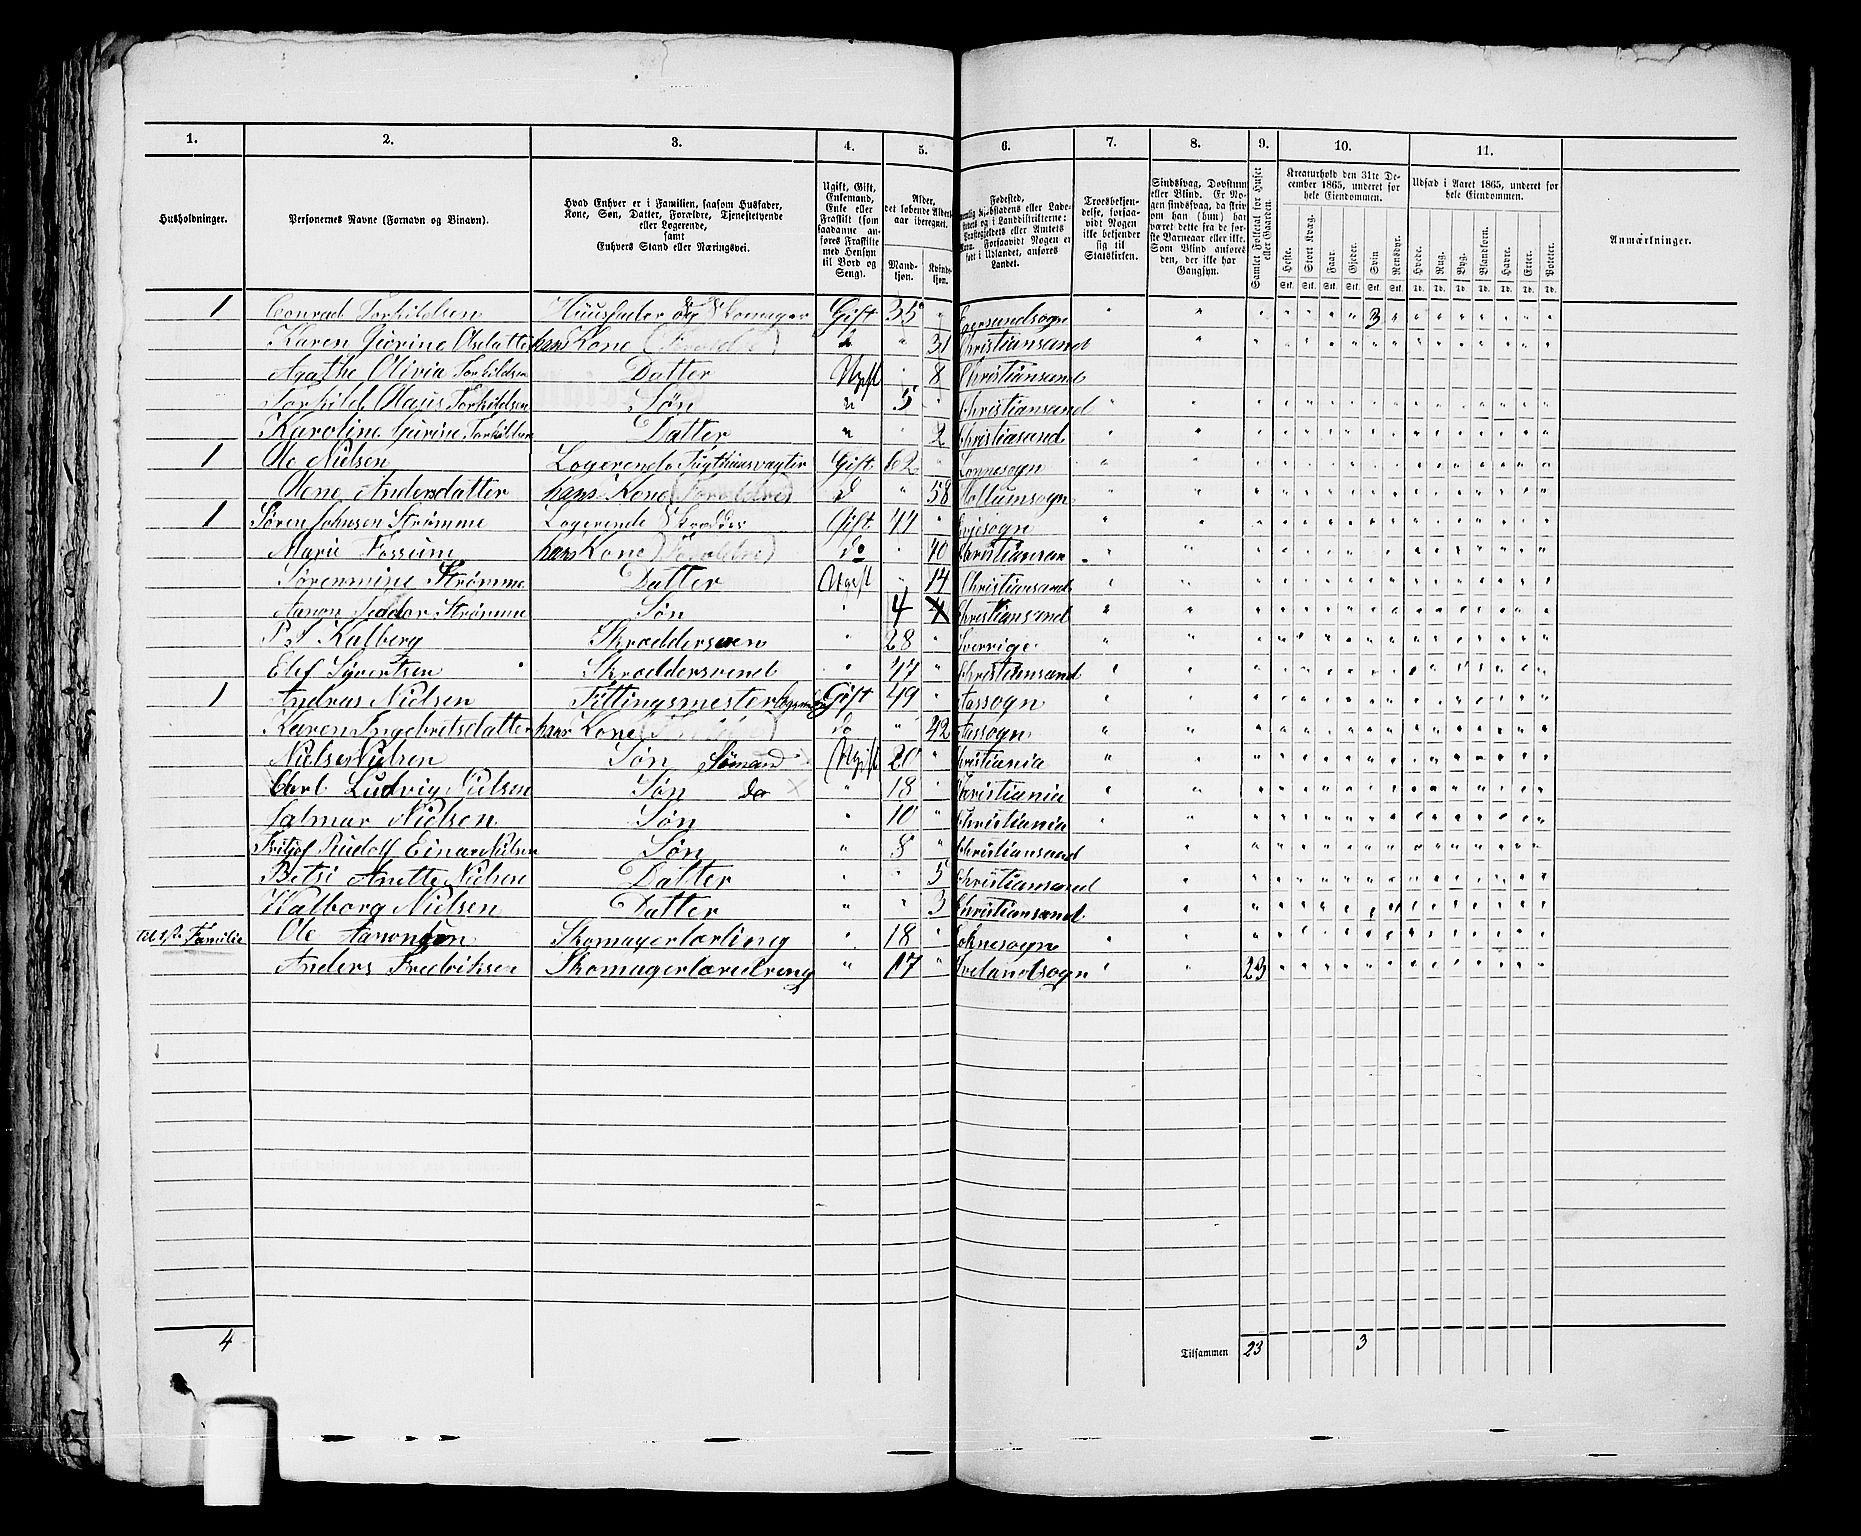 1. 2. 3. 4. 5. 6. 7. 8. 9. 10. 11.
Husholdninger.
Personernes Navne (Fornavn og Binavn).
Hvad Enhver er i Familien, saasom Husfader, Kone, Søn, Datter, Forældre, Tjenestetyende eller Logerende, samt Enhvers Stand eller Næringsvei.
Ugift, Gift, Enkemand, Enke eller Fraskilt (som saadanne anføres Fraskilte med Hensyn til Bord og Seng).
Alder, det løbende Alders aar iberegnet.
Mandkjøn. Kvindekjøn.
Fødested,
Troesbekjendelse, forsaavidt Nogen ikke bekjender sig til Statskirken.
Sindssvag, Døvstum eller Blind. Er Nogen sindssvag, da skrives om han (hun) har været dette fra de første Barneaar eller ikke. Som Blind anføres den, der ikke har Gangsyn.
Samlet Folketal for Huset eller Gaarden.
Kreaturhold den 31te December 1865, underet for hele Eiendommen.
Heste. Stort Kvæg. Faar. Gjeder. Svin Rensdyr.
Udsæd i Aaret 1865, underet for hele Eiendommen.
Hvede. Rug. Byg. Blandkorn. Havre. Erter. Poteter.
Anmærkninger.
1 Conrad Torkildsen Huusfader og Skomager Gift 35 " Egersundsogn 3
Karen Giørine Olsdatter hans Kone (Forældre) d " 31 Christiansand
Agathe Olivia Torkildsen Datter Ugift " 8 Christiansand
Torkild Olaus Torkildsen Søn " 5 " Christiansand
Karoline Gurine Torkildsen Datter " " 2 Christiasand
1 Ole Nielsen Logerende Tugthuusvagter Gift 62 "
Olene Andersdatter hans Kone (Forældre) d " 58 Hollumsogn
1 Søren Johnsen Strømme Logerende Skrædder Gift 44 "
Marie Fossum hans Kone (Forældre) do " 40 Christiansan
Sørenmine Strømme Datter Ugift " 14 Christiansand
Aaron Teodor Strømme Søn " 4 4 Christiansand
P. S Kalberg Skræddersven " 28 " Sverrige
Elef Syvertsen Skræddersvend " 47 " Christiansand
1 Andreas Nielsen Fittingsmester Gift 49 " Aassogn
Karen Ingebretsdatter hans Kone (Forældre) do " 42 Aassogn
Niels Nielsen Søn Sømand Ugift 20 " Christiania
Carl Ludvig Nielsen Søn do × " 18 " Christiania
Jalmar Nielsen Søn " 10 " Christiania
Fritjof Rudolf Einar Nielsen Søn " 8 " Christiansand
Betsi Anette Nielsen Datter " " 5 Christiansand
Valborg Nielsen Datter " " 3 Christiansand
til 1ste Familie Ole Aanonsen Skomagerlærling " 18 "
Anders Fredriksen Skomagerlæredreng " 17 " Ivelandsogn 23
4 Tilsammen 23 3